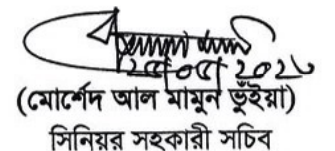 (মোর্শেদ আল মামুন ভুঁইয়া)
সিনিয়র সহকারী সচিব